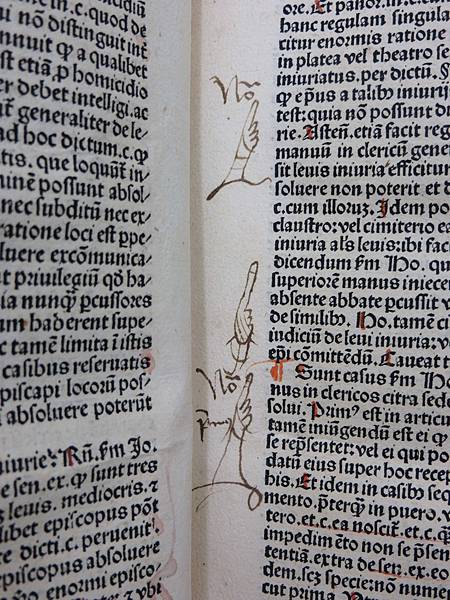 me in.c.quod de
ui nō distinguit int̄
nnuit ꝙ a qualibet
st etiā ꝓ homicidio
er debet intelligi.ac
generaliter dele⸗
ad hoc dictum.c.ꝙ
tis. que loquūt̄ in
minē possunt absol⸗
nec subditū nec ex⸗
ratione loci est ꝑpe⸗
luere excōmunica⸗
ut priuilegiū qđ ha⸗
ia nunqꝫ ꝑcussores
um haberent supe⸗
c tamē limita ī istis
casibus reseruatis
piscapi locorū pos⸗
absoluere poterūt
niurie: Rū.fm Jo.
e sen.ex.ꝙ sunt tres
leuis. mediocris.⁊
libet episcopus pōt
e dicti.c.peruenit.
episcopus absoluere
enormi episco⸗
⁊ vbi
No
No
ore. Et panor.in.c.
hanc regulam singula
citur enormis ratione
in platea vel theatro
iniuriatus.per dictū.
ꝙ ep̄us a talibꝫ iniurij
test: quia nō possunt
rie. etiā facit reg
manuū in clericū gene
sit leuis iniuria efficitur
soluere non poterit et d
c.cum illoruꝫ. Idem po
claustro: vel cimiterio
iniuria al's leuis: ibi faci
dicendum fm Ho. qu
superiorē manus iniecer
absente abbate ꝑcussit v
de similibꝫ. Ho. tamē ci
iudiciū de leui iniuria: v
ep̄i cōmittēdū. Caueat
¶ Sunt casus fm
nus in clericos citra sede
solui. Primꝰ est in articu
tamē iniūgendū est ei ꝙ
se rep̄sentet: vel ei qui po
datū eius super hoc recep
his. Et idem in casibꝫ seq
mento.ꝓterꝙ in puero.
tero.et.c.ea noscit̄.et.c.ꝙ
impedimēto non se p̄sen
tentiā.extra de sen.ex.eo
dem.scꝫ specie: nō numer
cut prima.